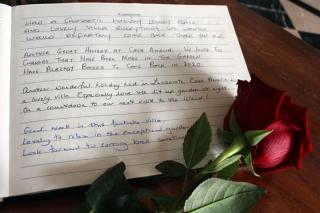 HAD A FANTASTIC HOLIDAY
AND LOVELY VILLA EVERYTHING WE WANTED
WOULD DEFINITELY COME BACK
ANOTHER GREAT HOLIDAY AT CASA AMANDA. WE LOVE THE
CHANGES THAT HAVE BEEN MADE IN THE GARDEN
HAVE ALREADY BOOKED TO COME BACK IN 2020
Another wonderful holiday had in Lanzarote. Casa Amanda is
a lovely villa. Especially love the lit up garden at night.
On a countdown to our next visit to the island!
Great week in this fantastic villa.
Lovely to relax in the exceptional garden
Look forward to coming back sometime